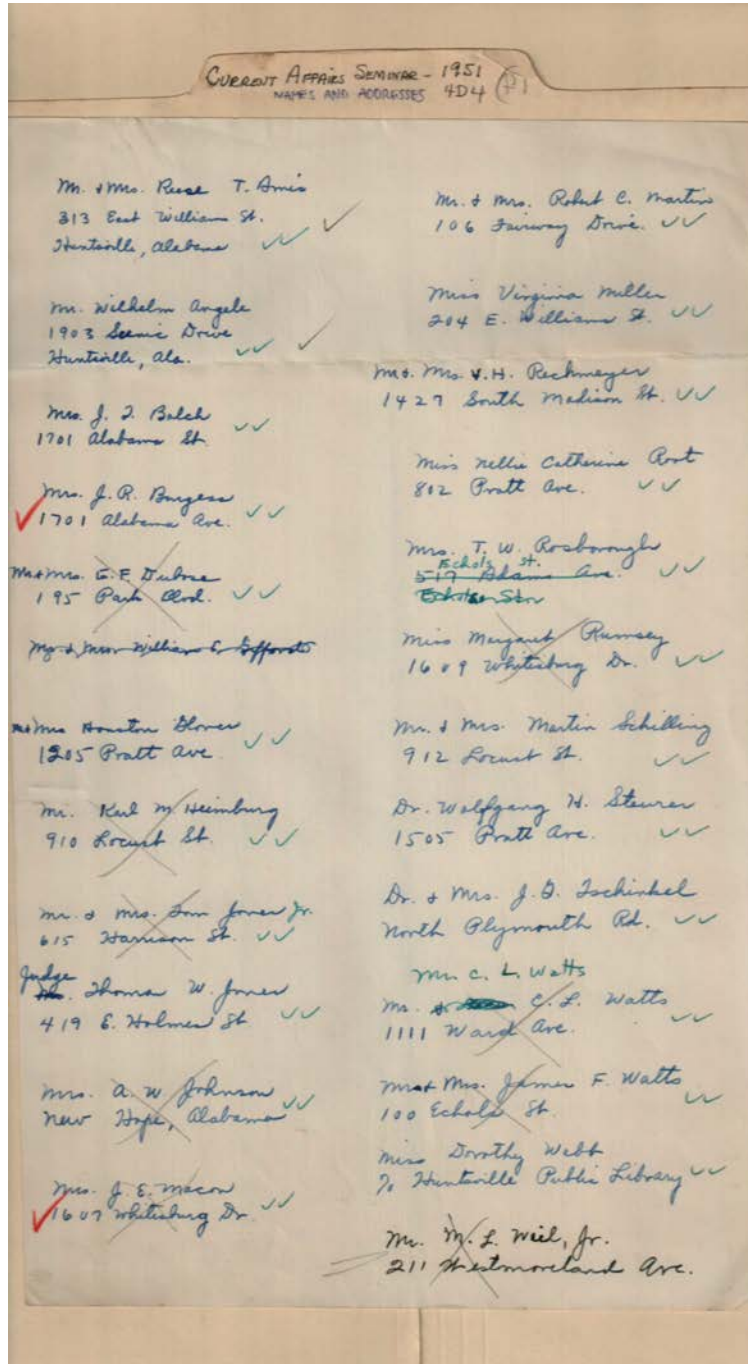 CURRENT AFFAIRS SEMINAR - 1951
NAMES AND ADDRESSES 4D4
Mr. & Mrs. Reese T. Amis
313 East Williams St.
Huntsville, Alabama
Mr. Wilhelm Angele
1903 Scenic Drive
Huntsville, Ala.
Mrs. J. I. Balch
1701 Alabama St.
Mrs. J. R. Burgess
1701 Alabama Ave.
Mr & Mrs. G. F. Dubose
195 Park Blvd.
Mr. & Mrs. William E.
Mr & Mrs Houston Glover
1205 Pratt Ave.
Mr. Karl M. Heimburg
910 Locust St.
Mr. & Mrs. Tom Jones Jr.
615 Harrison St.
Judge
Thomas W. Jones
419 E. Holmes St
Mrs. A. W. Johnson
New Hope, Alabama
Mrs. J. E. Macon
1607 Whitesburg Dr.
Mr. & Mrs. Robert C. Martin
106 Fairway Drive.
Miss Virginia Miller
204 E. Williams St.
Mr & Mrs. V. H. Reckmeyer
1427 South Madison St.
Miss Nellie Catherine Root
802 Pratt Ave.
Mrs. T. W. Rosborough
Echols St.
517 Adams Ave.
Echols
Miss Margaret Rumsey
1609 Whitesburg Dr.
Mr. & Mrs. Martin Schilling
912 Locust St.
Dr. Wolfgang H. Steurer
1505 Pratt Ave.
Dr. & Mrs. J. G. Tschinkel
North Plymouth Rd.
Mr. C. L. Watts
Mr. C. L. Watts
1111 Ward Ave.
Mr & Mrs. James F. Watts
100 Echols St.
Miss Dorothy Webb
% Huntsville Public Library
Mr. M. L. Weil, Jr.
211 Westmoreland Ave.